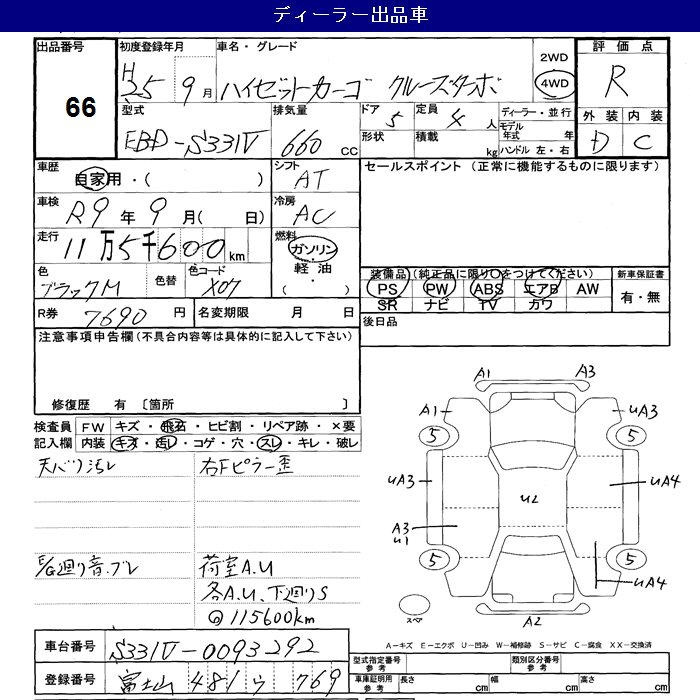 ディーラー出品車
出品番号 初度登録年月 車名・グレード 2WD 評価点
66 H25 9月 ハイゼットカーゴ クルーズターボ 4WD R
型式 排気量 ドア 定員 ディーラー・並行 外装 内装
EBD-S331V 660 CC 5 4人 モデル年式 年 D C
形状 積載 kg ハンドル 左・右
車歴 シフト セールスポイント (正常に機能するものに限ります)
自家用・( ) AT
車検 冷房
R9年9月( 日) AC
走行 燃料
11万5千600km ガソリン・軽油・( )
色 色替 色コード 装備品 (純正品に限り○をつけてください) 新車保証書
ブラックM X07 PS PW ABS エアB AW 有・無
SR ナビ TV カワ
R券 7690円 名変期限 月 日 後日品
注意事項申告欄 (不具合内容等は具体的に記入して下さい)
修復歴 有 〔箇所 〕
検査員 FW キズ・飛石・ヒビ割・リペア跡・×要
記入欄 内装 キズ・汚レ・コゲ・穴・スレ・キレ・破レ
天バリ汚レ 右Fピラー歪
E/G廻り音.ブレ 荷室A.U
各A.U、下廻りS
◎115600km
A1 A3
A1 UA3
5 5
UA3 U2 UA4
A3
U1
5 5
UA4
スペア A2
A-キズ E-エクボ U-凹み W-補修跡 S-サビ C-腐食 XX-交換済
車台番号 S331V-0093292
型式指定番号 参考 類別区分番号 参考
登録番号 富士山 481 ウ 769
車庫証明用 参考 長さ cm 幅 cm 高さ cm